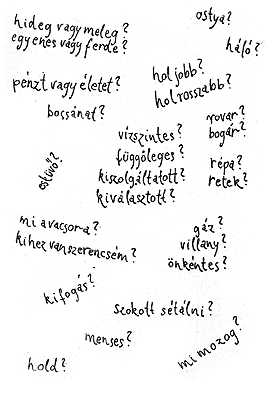 ostya?
hideg vagy meleg?
egyenes vagy ferde?
háló?
hol jobb?
hol rosszabb?
pénzt vagy életet?
bocsánat?
rovar?
bogár?
vízszintes?
függőleges?
kiszolgáltatott?
kiválasztott?
esküvő?
répa?
retek?
mi a vacsora?
kihez van szerencsém?
gáz?
villany?
önkéntes?
kifogás?
szokott sétálni?
menses?
mi mozog?
hold?